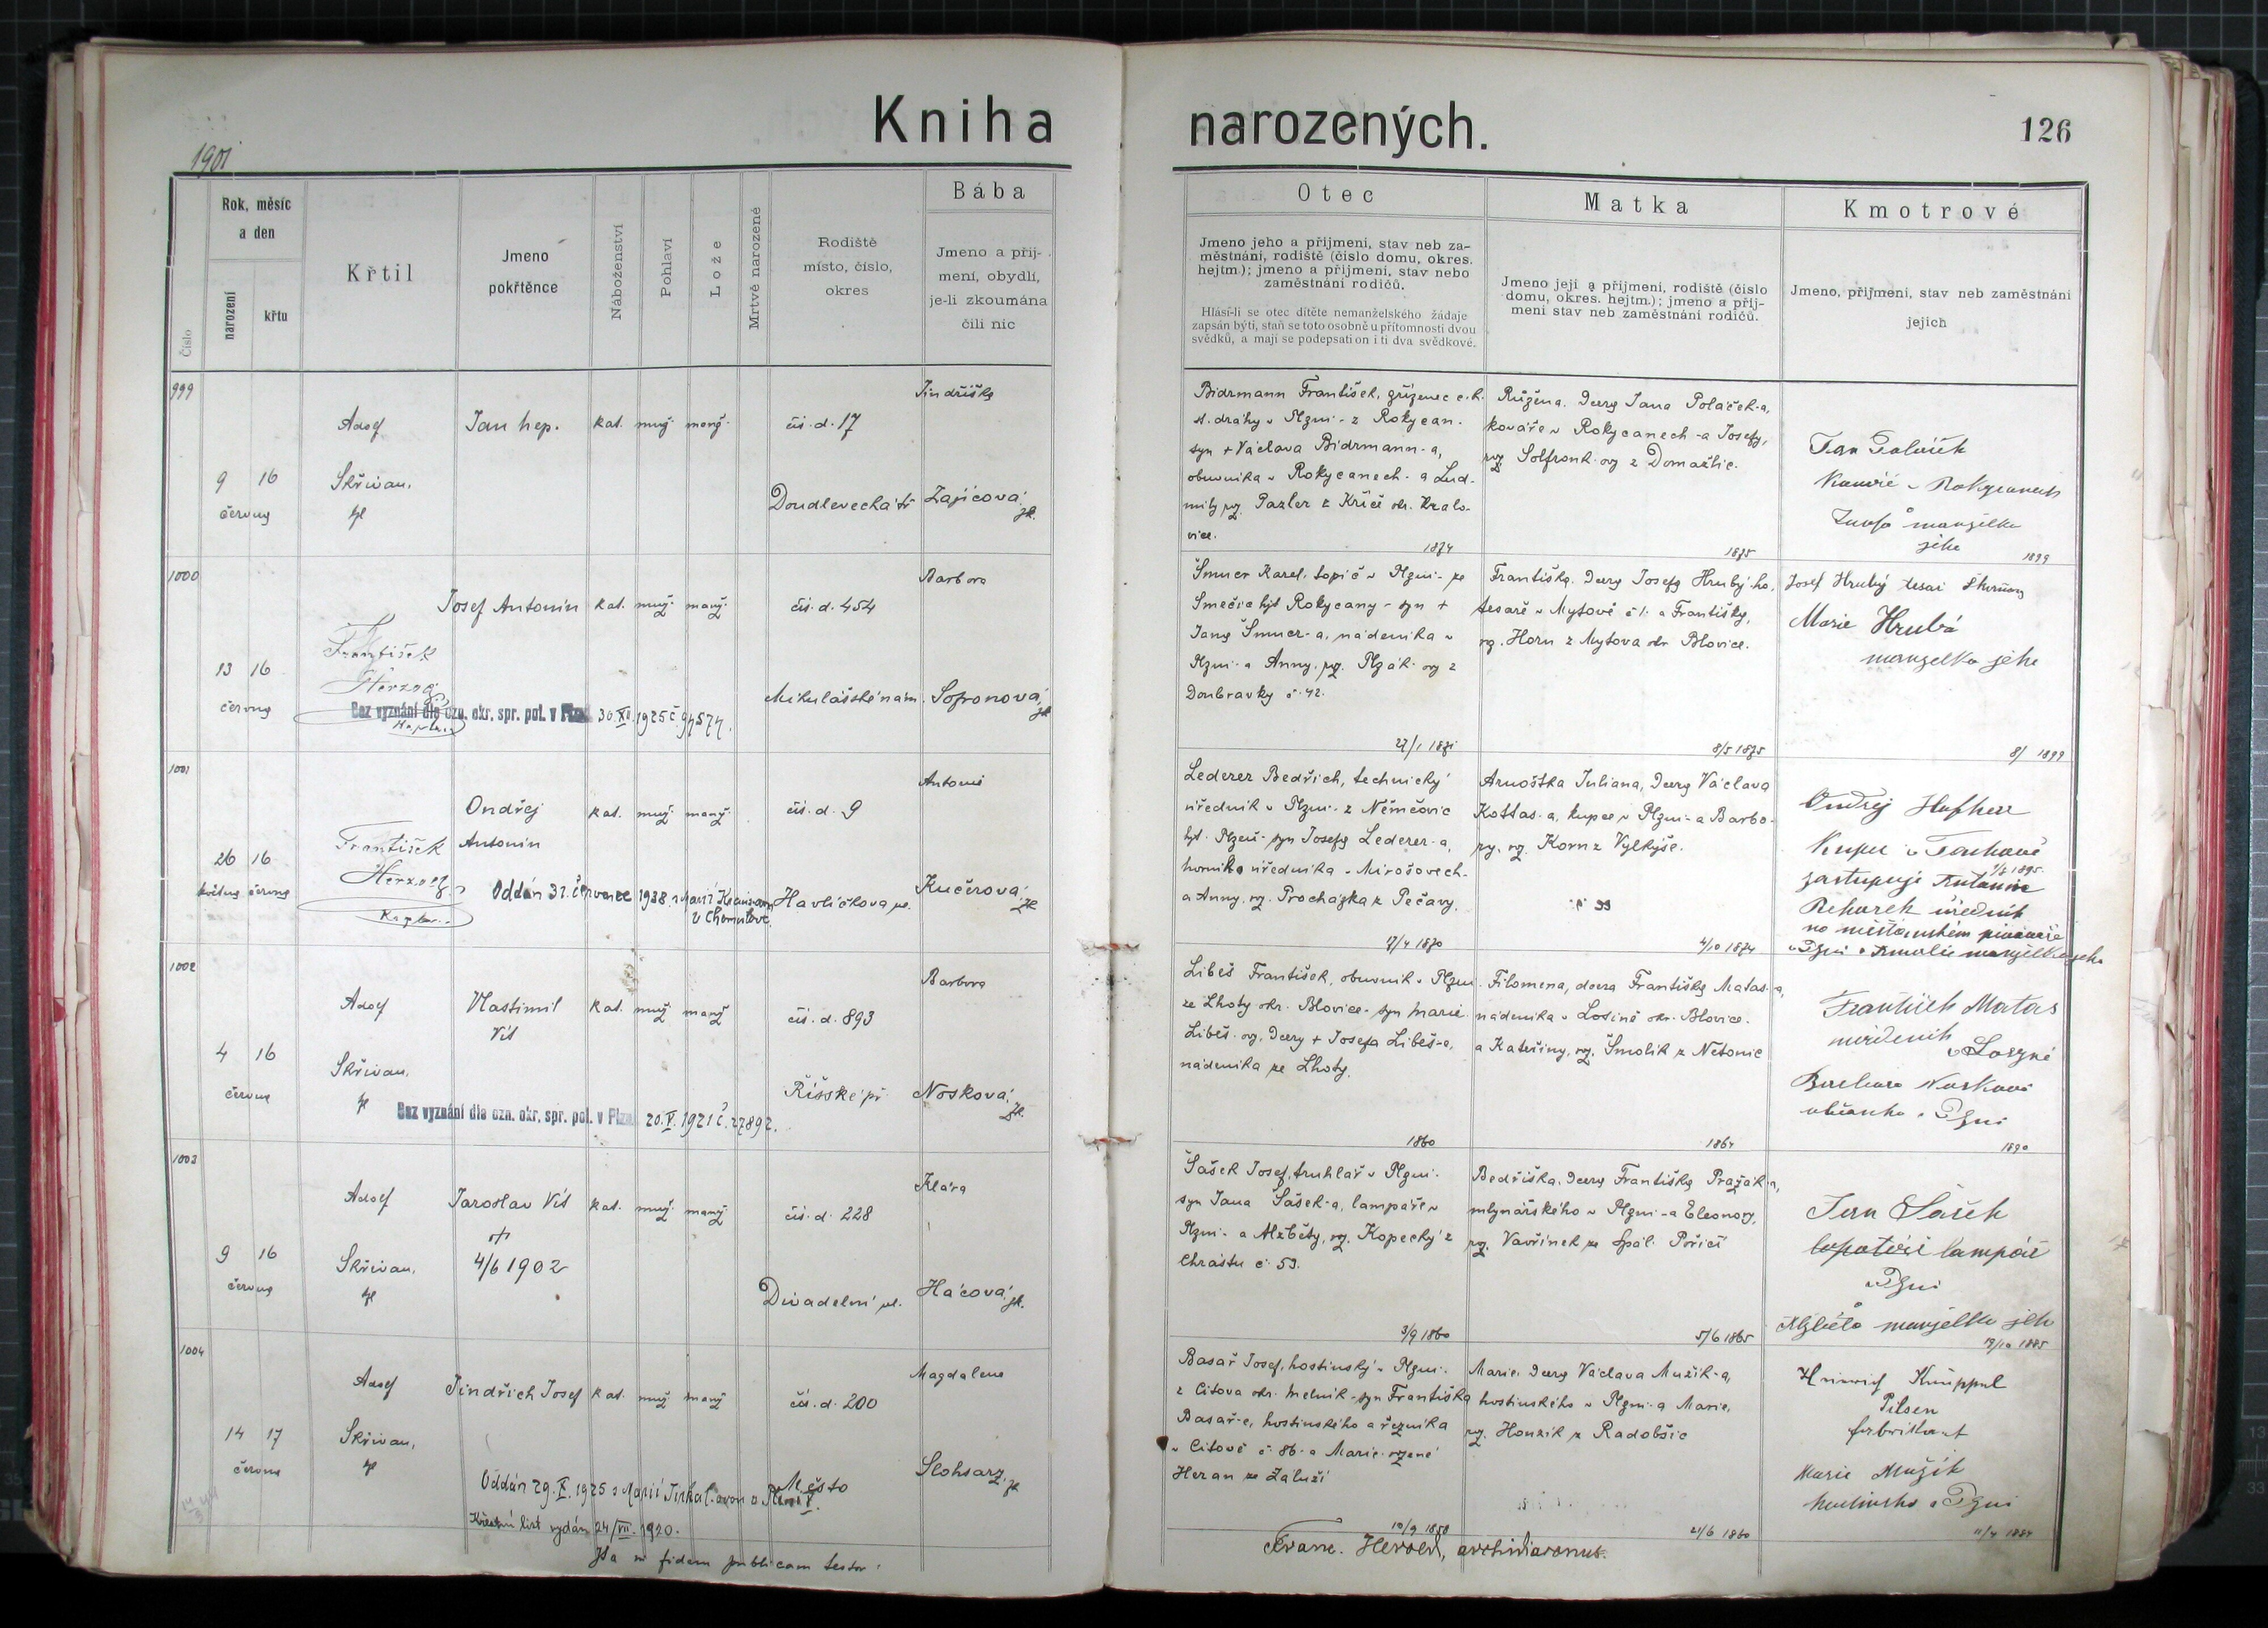 Kniha narozených.
126
1901
Číslo
Rok, měsíc
a den
narození
křtu
Křtil
Jmeno
pokřtěnce
Náboženství
Pohlaví
Lože
Mrtvě narozené
Rodiště
místo, číslo,
okres
Bába
Jmeno a přij-
mení, obydlí,
je-li zkoumána
čili nic
Otec
Jmeno jeho a příjmení, stav neb za-
městnání, rodiště (číslo domu, okres.
hejtm.); jmeno a příjmení, stav nebo
zaměstnání rodičů.
Hlásí-li se otec dítěte nemanželského žádaje
zapsán býti, staň se toto osobně u přítomnosti dvou
svědků, a mají se podepsati on i ti dva svědkové.
Matka
Jmeno její a příjmení, rodiště (číslo
domu, okres. hejtm.); jmeno a příj-
mení stav neb zaměstnání rodičů.
Kmotrové
Jmeno, příjmení, stav neb zaměstnání
jejich
999
9 16
června
Adolf
Skřivan,
Jan Nep.
kat. muž. manž.
čís. d. 17
Doudlevecká tř.
Jindřiška
Zajícová, zk.
Bidrmann František, zřízenec c. k.
st. dráhy v Plzni - z Rokycan.
syn + Václava Bidrmann-a,
obuvníka v Rokycanech - a Lud-
mily roz. Pazler z Kříče okr. Kralo-
vice.
1874
Růžena, dcera Jana Poláček-a,
kováře v Rokycanech - a Josefy,
roz. Solfronk-ovy z Domažlic.
1875
Jan Poláček
Kovář v Rokycanech
Josefa manželka
jeho
1899
1000
13 16
června
František
Herzog
Kaplan
Josef Antonín
kat. muž. manž.
čís. d. 454
Mikulášské nám.
Barbora
Sofronová, zk.
Bez vyznání dle ozn. okr. spr. pol. v Plzni 30. XII. 1925 č. 94574.
Šmucr Karel, topič v Plzni - ze
Smečic hejt Rokycany - syn +
Jana Šmucr-a, nádeníka v
Plzni - a Anny, roz. Plzák-ovy z
Doubravky č. 42.
27/1 1871
Františka, dcera Josefa Hrubý-ho,
tesaře v Mytově č 1. a Františky,
roz. Horn z Mytova okr. Blovice.
8/5 1875
Josef Hrubý tesař Skvrňany
Marie Hrubá
manželka jeho
8/ 1899
1001
26 16
května června
František
Herzog
Kaplan
Ondřej
Antonín
kat. muž. manž.
čís. d. 9
Havlíčkova ul.
Antonie
Kučerová, zk.
Oddán 31. července 1938 s Marií
v Chomutově.
Lederer Bedřich, technický
úředník v Plzni - z Němčovic
hejt. Plzeň - syn Josefa Lederer-a,
horního úředníka v Mirošovech -
a Anny, roz. Procházka z Pečavy.
17/4 1870
Arnoštka Juliana, dcera Václava
Kottas-a, kupce v Plzni - a Barbo-
ry, roz. Korn z Vylkýše.
4/10 1874
Ondřej Hofherr
Kupec v Tachově
zastupuje Antonín
Řehořek úředník
na měšťanském pivovaře
v Plzni a Amalie manželka jeho
1002
4 16
června
Adolf
Skřivan,
Vlastimil
Vít
kat. muž. manž.
čís. d. 893
Říšské př.
Barbora
Nosková, zk.
Bez vyznání dle ozn. okr. spr. pol. v Plzni 20. V. 1921 č. 27892.
Libeš František, obuvník v Plzni
ze Lhoty okr. Blovice - syn Marie
Libeš-ovy, dcery + Josefa Libeš-e,
nádeníka ze Lhoty.
1860
Filomena, dcera Františka Matas-a,
nádeníka v Losiné okr. Blovice.
a Kateřiny, roz. Smolík z Netonic
1864
František Matas
v Losyné
Barbora Nosková
občanka v Plzni
1890
1003
9 16
června
Adolf
Skřivan,
Jaroslav Vít
+
4/6 1902
kat. muž. manž.
čís. d. 228
Divadelní ul.
Klára
Hácová, zk.
Šašek Josef, truhlář v Plzni.
syn Jana Šašek-a, lampáře v
Plzni - a Alžběty, roz. Kopecký z
Chrástu č. 53.
3/9 1860
Bedřiška, dcera Františka Pražák-a,
mlynářského v Plzni - a Eleonory,
roz. Vavřinek ze Spál. Poříčí
5/6 1865
Jan Šašek
lampář
v Plzni
Alžběta manželka jeho
1885
1004
14 17
června
Adolf
Skřivan,
Jindřich Josef
kat. muž. manž.
čís. d. 200
Město
Magdalena
Slohsarz, zk.
Oddán 29. X. 1925 s Marií
Křestní list vydán 24/VII. 1920.
Basař Josef, hostinský v Plzni.
z Citova okr. Mělník - syn Františka
Basař-e, hostinského a řezníka
v Citově č. 86 - a Marie rozené
Heran ze Záluží
10/9 1858
Marie, dcera Václava Mužík-a,
hostinského v Plzni - a Marie,
roz. Honzík z Radobšic
21/6 1860
Heinrich Knüppel
Pilsen
Marie Mužík
hostinská v Plzni
11/4 1884
Ita in fidem publicam testor:
Franc. Herold, archidiaconus.